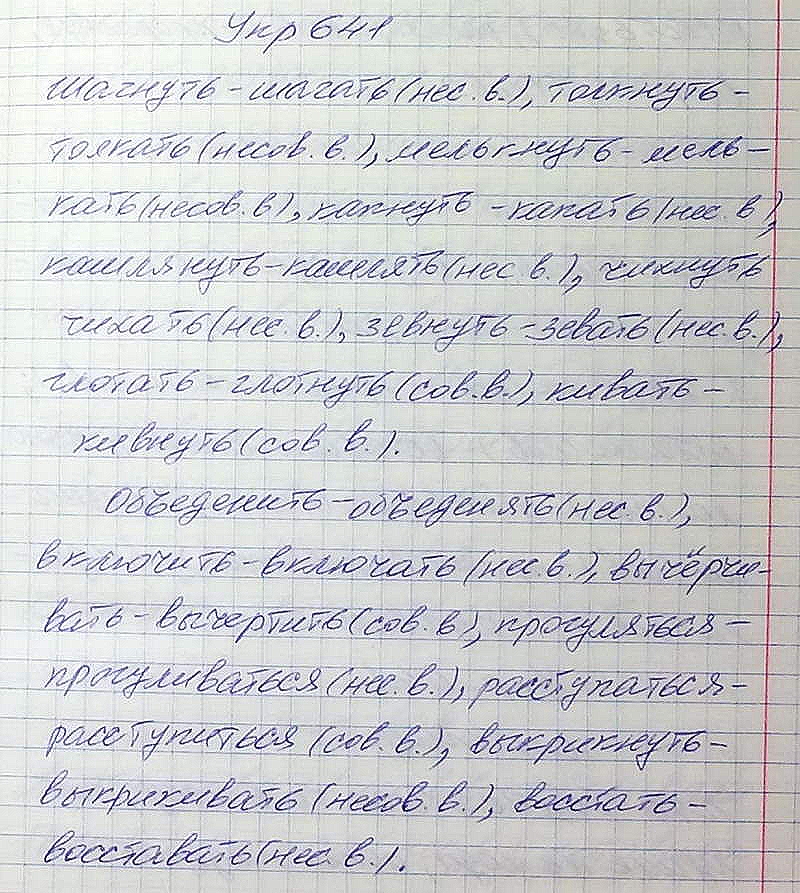 Упр 641
Шагнуть - шагать (нес. в.), толкнуть -
толкать (несов. в.), мелькнуть - мель-
кать (несов. в), капнуть - капать (нес. в),
кашлянуть - кашлять (нес. в.), чихнуть
чихать (нес. в.), зевнуть - зевать (нес. в.),
глотать - глотнуть (сов. в.), кивать -
кивнуть (сов. в.).
Объеденить - объеденять (нес. в.),
включить - включать (нес. в.), вычёрчи-
вать - вычертить (сов. в), прогуляться -
прогуливаться (нес. в.), расступаться -
расступиться (сов. в.), выкрикнуть -
выкрикивать (несов. в.), восстать -
восставать (нес. в.).